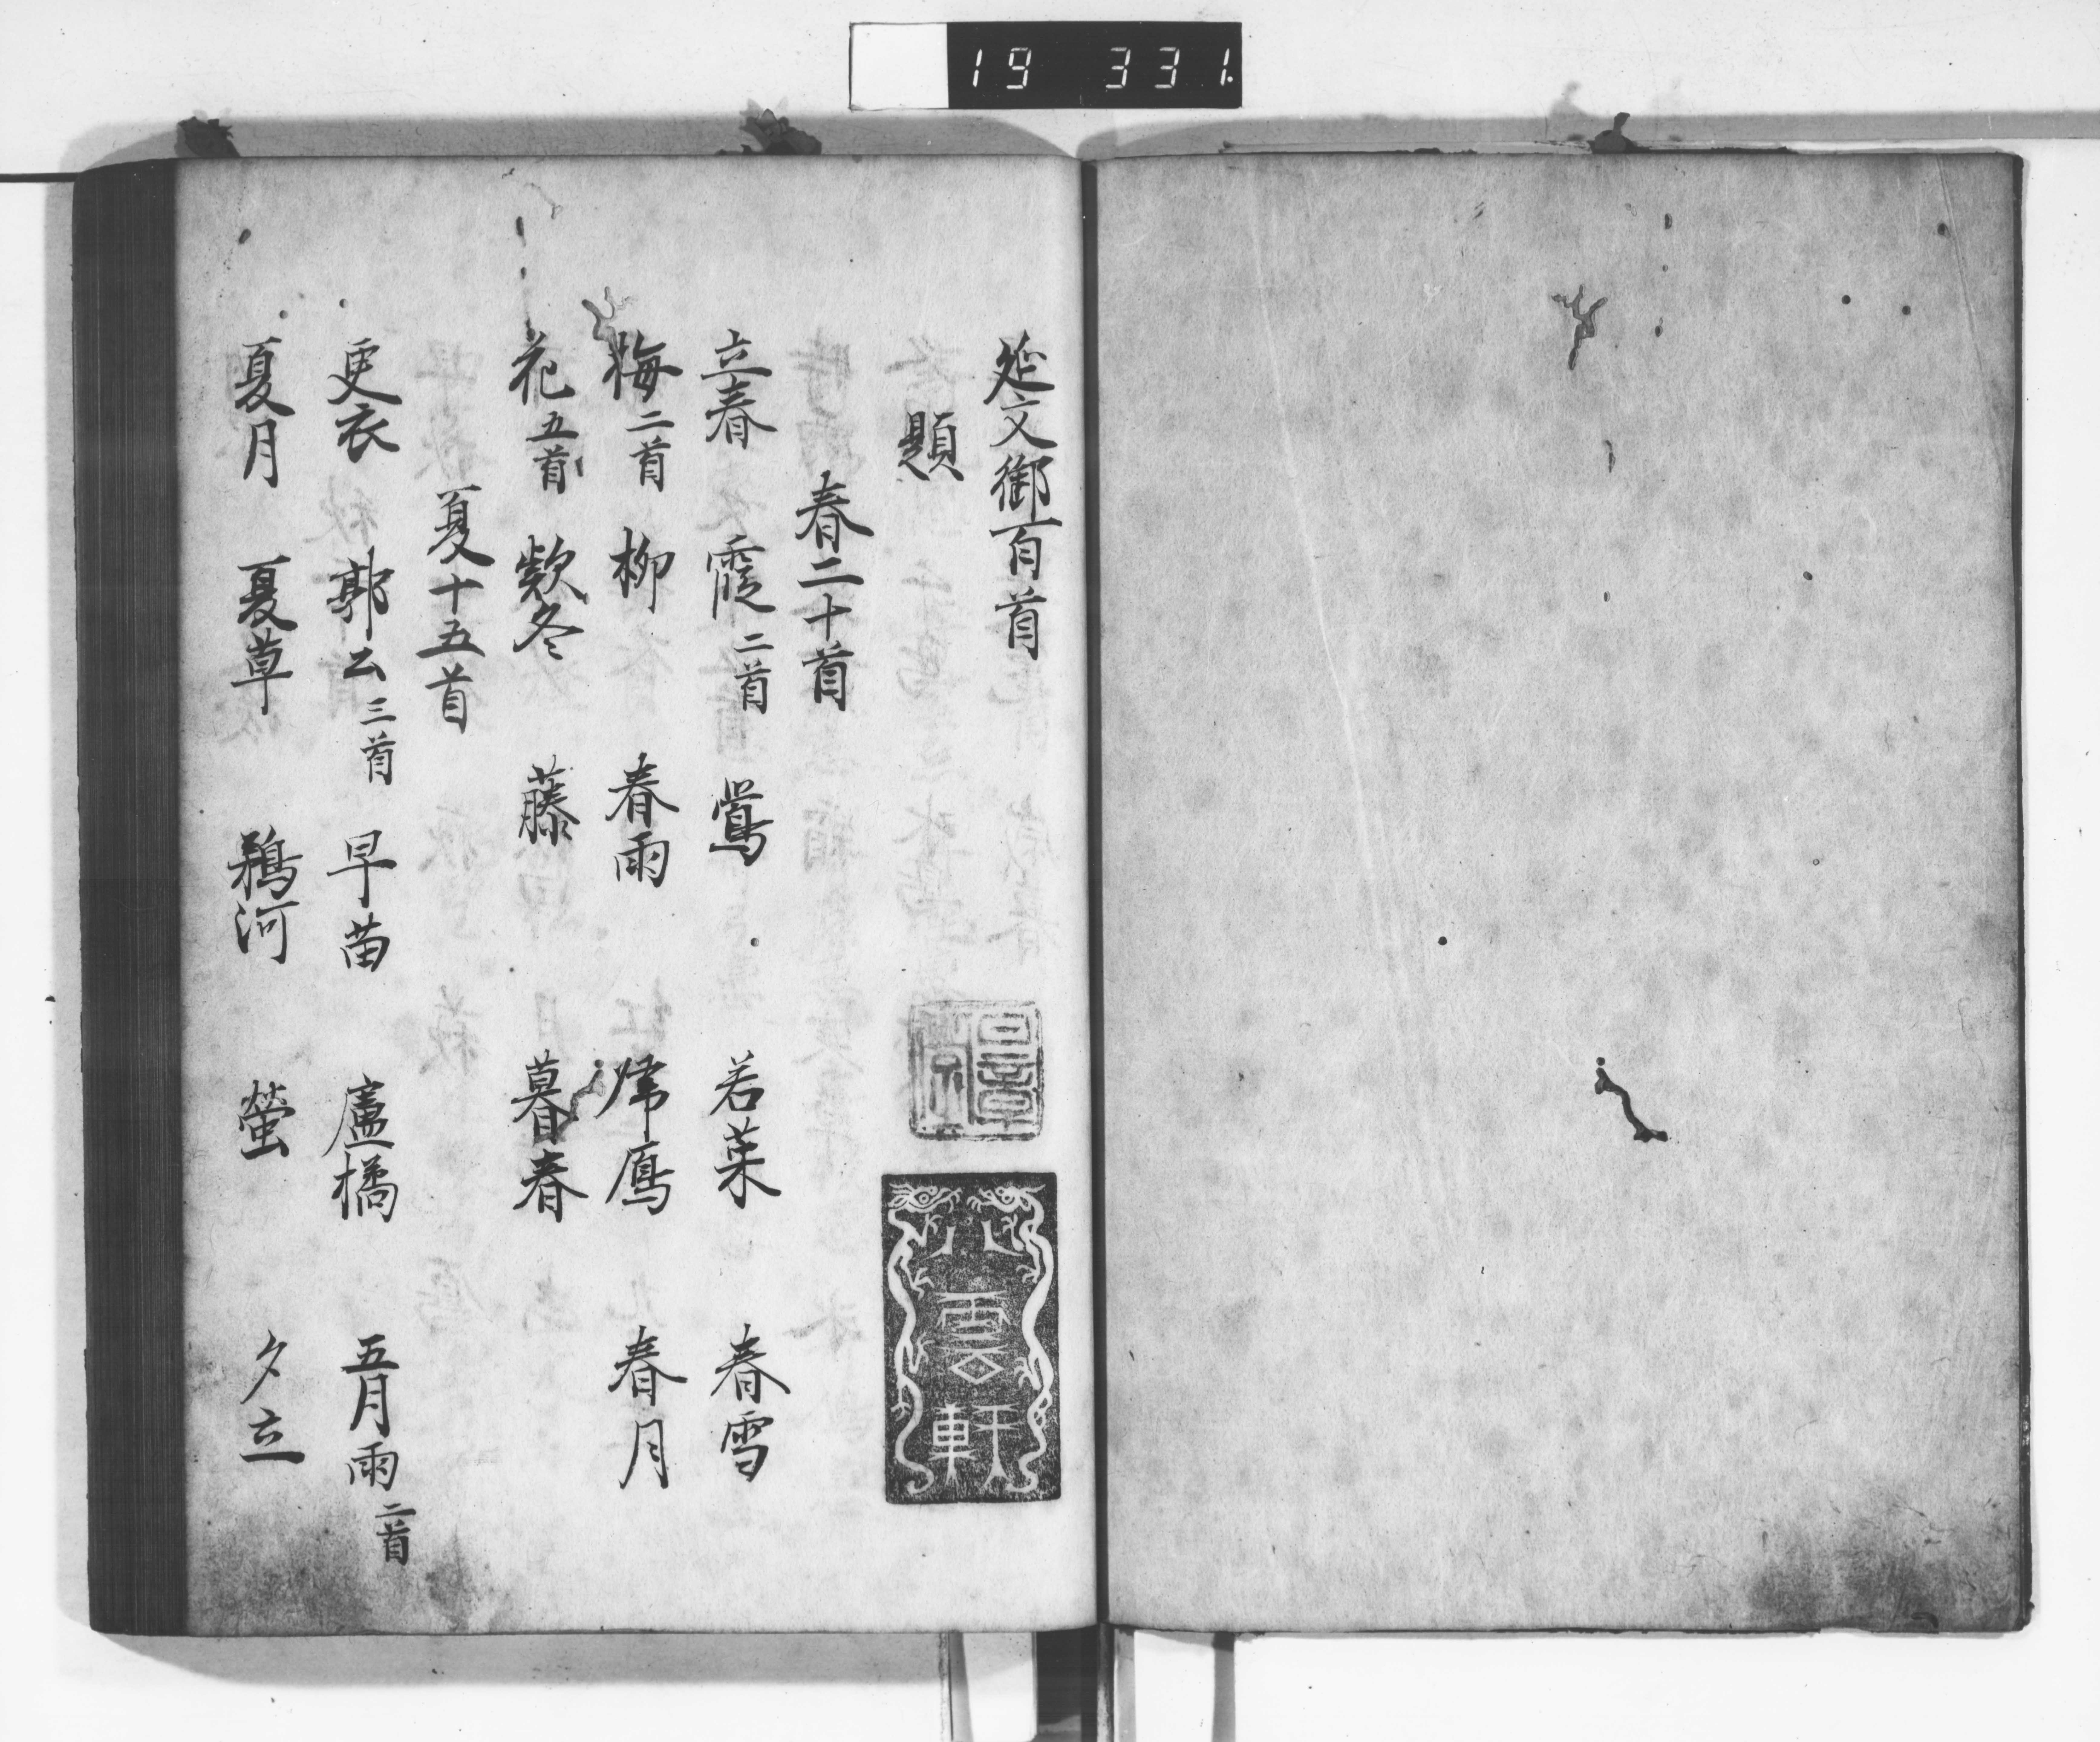 19 331.
延文御百首
題
春二十首
立春 霞二首 鴬 若菜 春雪
梅二首 柳 春雨 帰鴈 春月
花五首 欵冬 藤 暮春
夏十五首
更衣 郭公三首 早苗 廬橘 五月雨二首
夏月 夏草 鵜河 螢 夕立
八雲軒